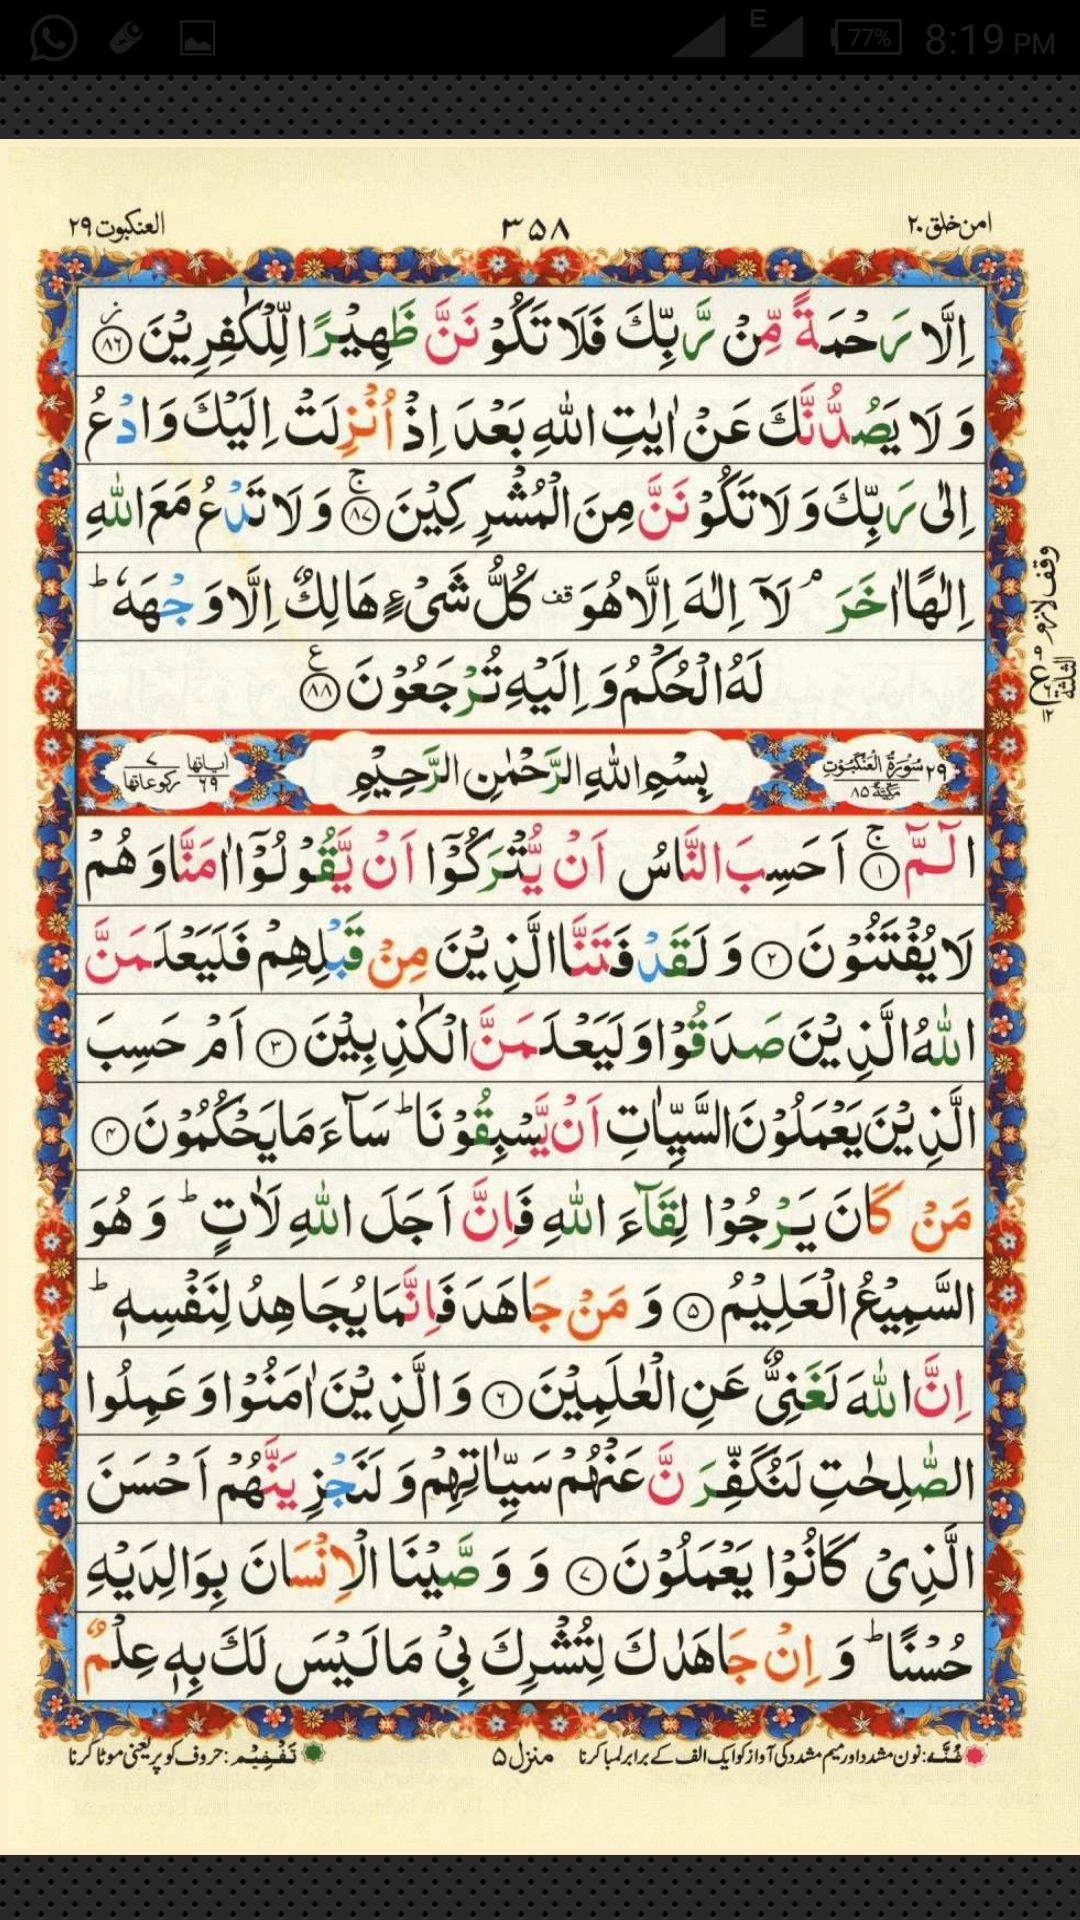 E 77% 8:19 PM
امن خلق ۲۰ ۳۵۸ العنکبوت ۲۹
اِلَّا رَحْمَةً مِّنْ رَّبِّكَ فَلَا تَكُوْنَنَّ ظَهِيْرًا لِّلْكٰفِرِيْنَ ۸۶
وَلَا يَصُدُّنَّكَ عَنْ اٰيٰتِ اللّٰهِ بَعْدَ اِذْ اُنْزِلَتْ اِلَيْكَ وَادْعُ
اِلٰى رَبِّكَ وَلَا تَكُوْنَنَّ مِنَ الْمُشْرِكِيْنَ ۸۷ ج وَلَا تَدْعُ مَعَ اللّٰهِ
اِلٰهًا اٰخَرَ ۘ لَآ اِلٰهَ اِلَّا هُوَ قف كُلُّ شَیْءٍ هَالِكٌ اِلَّا وَجْهَهٗ ط
لَهُ الْحُكْمُ وَاِلَيْهِ تُرْجَعُوْنَ ۸۸ ع
وقف لازم
ع
الثلثة
۲۹ سُوْرَةُ الْعَنْكَبُوْتِ مَكِّيَّةٌ ۸۵ بِسْمِ اللّٰهِ الرَّحْمٰنِ الرَّحِيْمِ اٰیاتها ۶۹ ركوعاتها ۷
الٓمّٓ ۱ ج اَحَسِبَ النَّاسُ اَنْ يُّتْرَكُوْٓا اَنْ يَّقُوْلُوْٓا اٰمَنَّا وَهُمْ
لَا يُفْتَنُوْنَ ۲ وَلَقَدْ فَتَنَّا الَّذِيْنَ مِنْ قَبْلِهِمْ فَلَيَعْلَمَنَّ
اللّٰهُ الَّذِيْنَ صَدَقُوْا وَلَيَعْلَمَنَّ الْكٰذِبِيْنَ ۳ اَمْ حَسِبَ
الَّذِيْنَ يَعْمَلُوْنَ السَّيِّاٰتِ اَنْ يَّسْبِقُوْنَا ط سَآءَ مَا يَحْكُمُوْنَ ۴
مَنْ كَانَ يَرْجُوْا لِقَآءَ اللّٰهِ فَاِنَّ اَجَلَ اللّٰهِ لَاٰتٍ ط وَهُوَ
السَّمِيْعُ الْعَلِيْمُ ۵ وَمَنْ جَاهَدَ فَاِنَّمَا يُجَاهِدُ لِنَفْسِهٖ ط
اِنَّ اللّٰهَ لَغَنِیٌّ عَنِ الْعٰلَمِيْنَ ۶ وَالَّذِيْنَ اٰمَنُوْا وَعَمِلُوا
الصّٰلِحٰتِ لَنُكَفِّرَنَّ عَنْهُمْ سَيِّاٰتِهِمْ وَلَنَجْزِيَنَّهُمْ اَحْسَنَ
الَّذِیْ كَانُوْا يَعْمَلُوْنَ ۷ وَوَصَّيْنَا الْاِنْسَانَ بِوَالِدَيْهِ
حُسْنًا ط وَاِنْ جَاهَدٰكَ لِتُشْرِكَ بِیْ مَا لَيْسَ لَكَ بِهٖ عِلْمٌ
غُنَّہ: نون مشدد اور میم مشدد کی آواز کو ایک الف کے برابر لمبا کرنا منزل ۵ تَفْخِیْم: حروف کو پُر یعنی موٹا کرنا